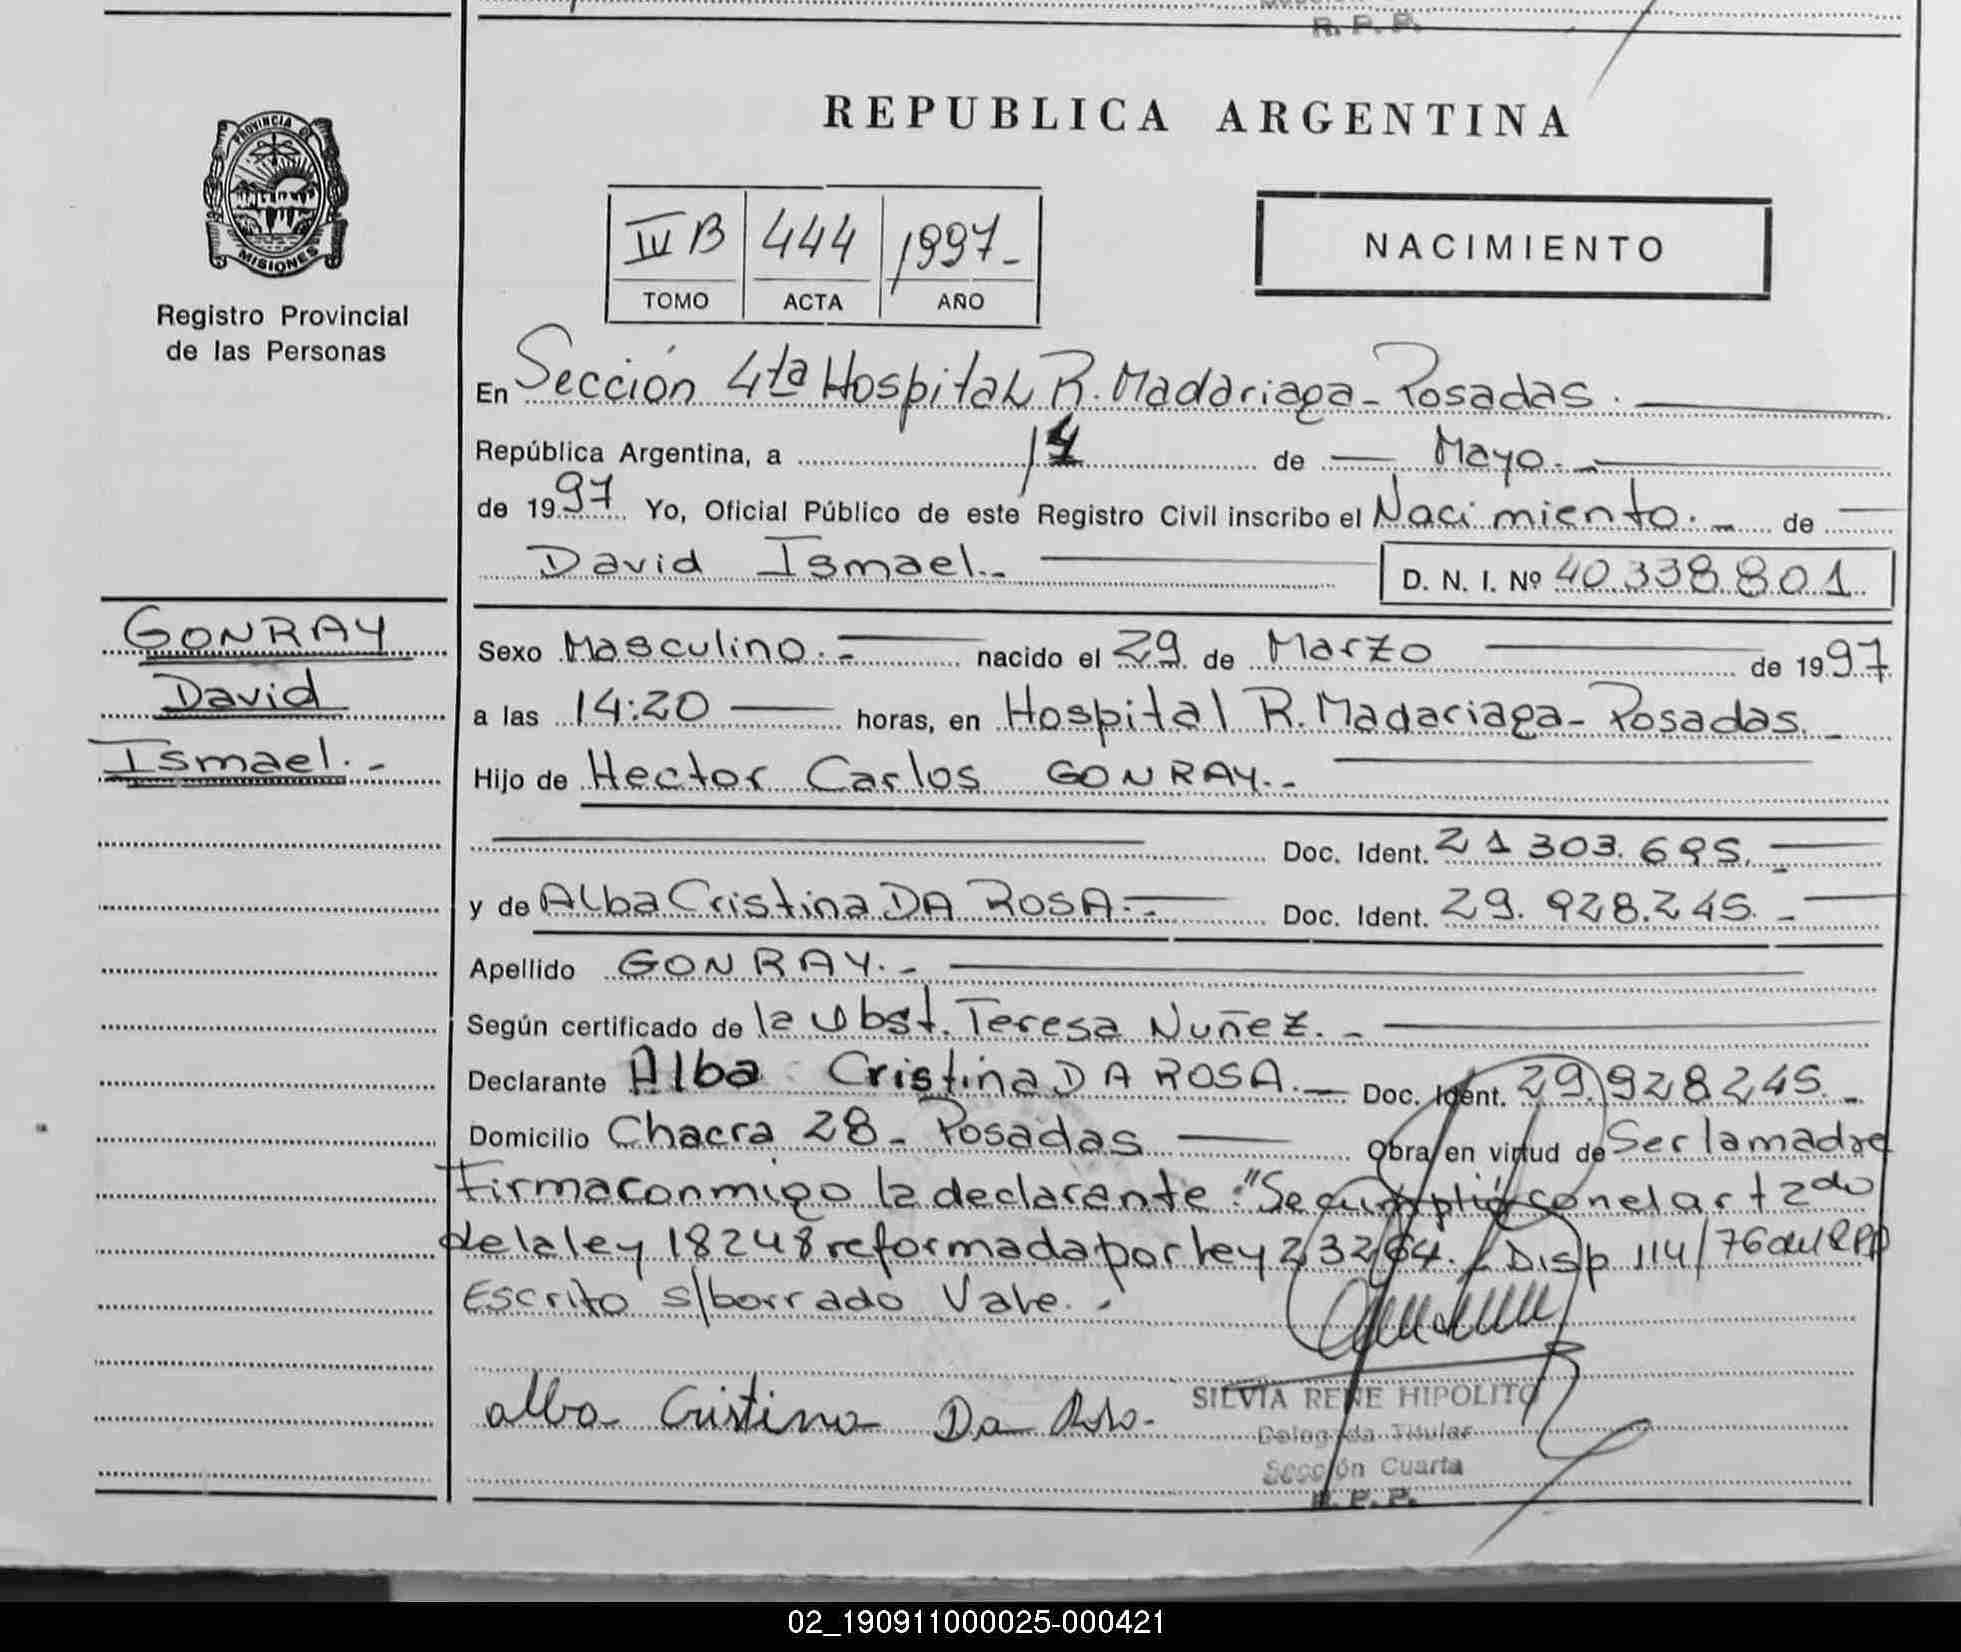 R. P. P.
REPUBLICA ARGENTINA
PROVINCIA DE
MISIONES
Registro Provincial
de las Personas
IV B 444 1997-
TOMO ACTA AÑO
NACIMIENTO
En Sección 4ta Hospital R. Madariaga - Posadas.
República Argentina, a 14 de Mayo.-
de 1997 Yo, Oficial Público de este Registro Civil inscribo el Nacimiento.- de
David Ismael.- D. N. I. Nº 40.338.801.
GONRAY
David
Ismael.-
Sexo Masculino.- nacido el 29 de Marzo de 1997
a las 14:20 horas, en Hospital R. Madariaga - Posadas.-
Hijo de Hector Carlos GONRAY.-
Doc. Ident. 21 303.695.-
y de Alba Cristina DA ROSA.- Doc. Ident. 29.928.245.-
Apellido GONRAY.-
Según certificado de la Obst. Teresa Nuñez.-
Declarante Alba Cristina DA ROSA.- Doc. Ident. 29.928245.-
Domicilio Chacra 28 - Posadas Obra en virtud de Ser la madre
Firma conmigo la declarante: "Se cumplió con el art 2do
de la ley 18248 reformada por ley 23264. Disp 114/76 del RPP
Escrito s/borrado Vale.-
Alba Cristina Da Rosa.
SILVIA RENE HIPOLITO
Delegada Titular
Sección Cuarta
R. P. P.
02_190911000025-000421